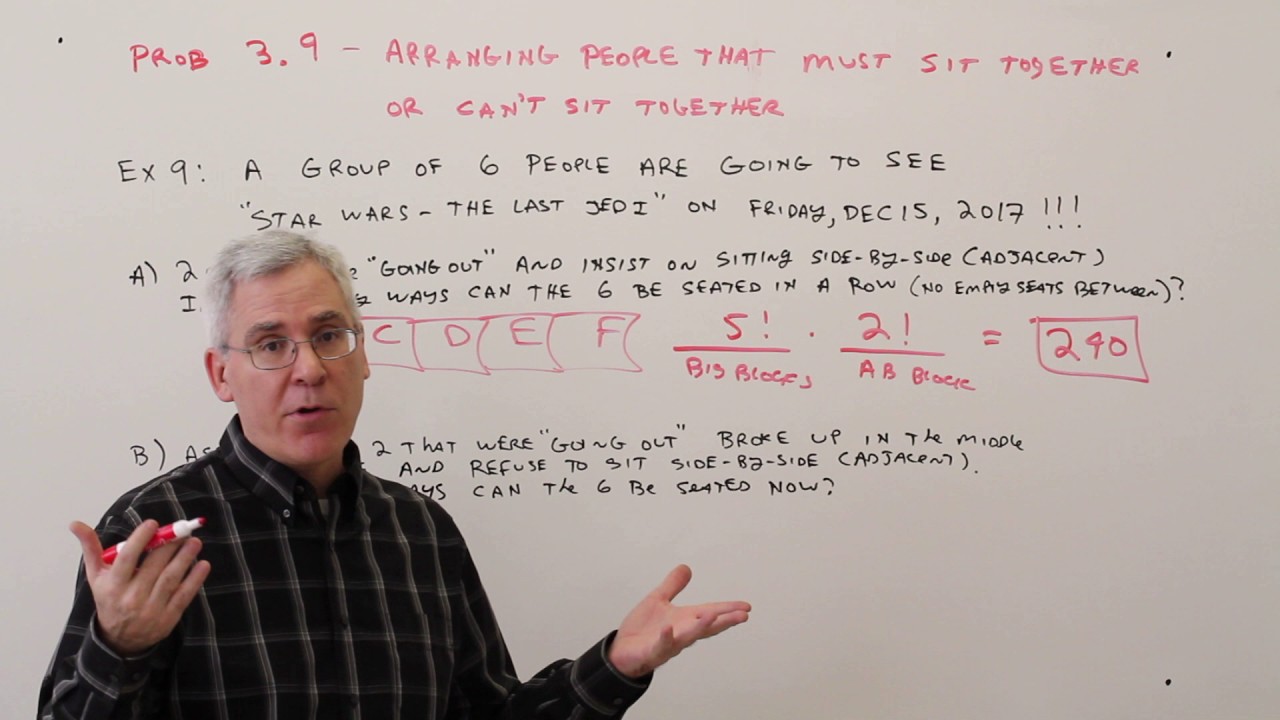 PROB 3.9 - ARRANGING PEOPLE THAT MUST SIT TOGETHER
OR CAN'T SIT TOGETHER
EX 9: A GROUP OF 6 PEOPLE ARE GOING TO SEE
"STAR WARS - THE LAST JEDI" ON FRIDAY, DEC 15, 2017 !!!
A) 2 "GOING OUT" AND INSIST ON SITTING SIDE-BY-SIDE (ADJACENT)
WAYS CAN THE 6 BE SEATED IN A ROW (NO EMPTY SEATS BETWEEN)?
C D E F 5! · 2! = 240
BIG BLOCKS AB BLOCK
B) 2 THAT WERE "GOING OUT" BROKE UP IN THE MIDDLE
AND REFUSE TO SIT SIDE-BY-SIDE (ADJACENT).
CAN THE 6 BE SEATED NOW?